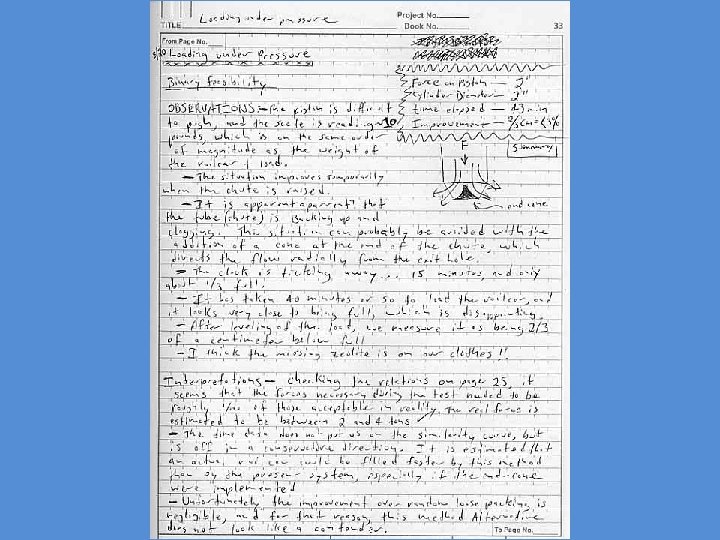 TITLE Loading under pressure
Project No.
Book No.
33
From Page No.
Loading under Pressure
Binary Feasibility
Force on Piston — 2"
Cylinder Diameter — 2"
time elapsed — 43 min
Improvement —
Summary
F
end cone
OBSERVATIONS:- The piston is difficult
to push, and the scale is reading ~10
pounds which is on the same order
of magnitude as the weight of
the railcar & load.
- The situation improves temporarily
when the chute is raised.
- It is apparent apparent that
the tube (chute) is backing up and
clogging. This situation can probably be avoided with the
addition of a cone at the end of the chute, which
diverts the flow radially from the exit hole.
- The clock is ticking away... 15 minutes, and only
about 1/3 full.
- It has taken 40 minutes or so to load the railcar, and
it looks very close to being full, which is disappointing.
- After leveling of the load, we measure it as being 2/3
of a centimeter below full
- I think the missing zeolite is on our clothes!!
Interpretations - Checking the relations on page 25, it
seems that the forces necessary during the test needed to be
roughly of those acceptable in reality. The real force is
estimated to be between 2 and 4 tons
- The time data does not put us on the similarity curve, but
is off in a conservative direction. It is estimated that
an actual railcar could be filled faster by this method
than by the present system, especially if the end-cone
were implemented
- Unfortunately the improvement over random loose packing is
negligible, and for that reason, this method Alternative
does not look like a contender.
To Page No.